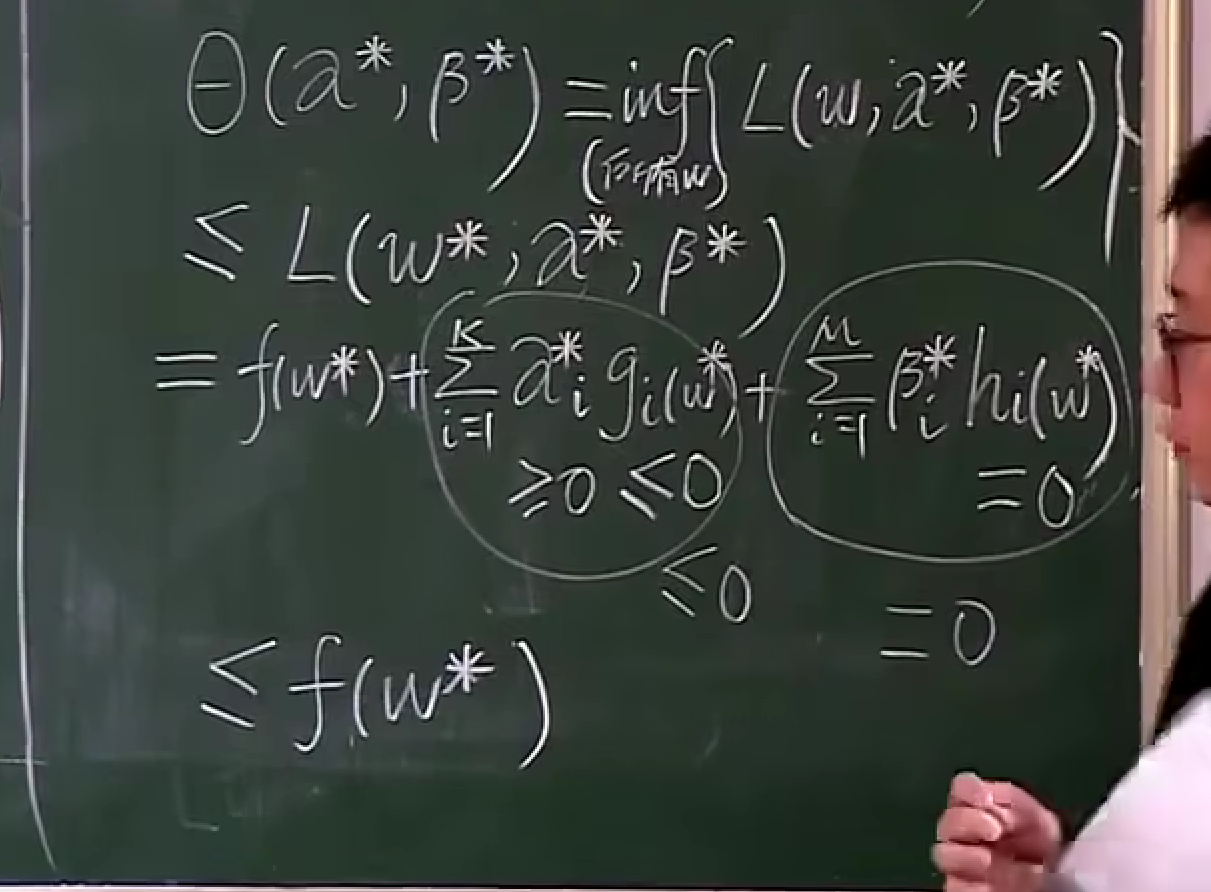 Θ(α*, β*) = inf{L(w, α*, β*)}
(所有w)
≤ L(w*, α*, β*)
= f(w*) + Σ_{i=1}^{K} α*_i g_i(w*) + Σ_{i=1}^{M} β*_i h_i(w*)
≥0 ≤0 =0
≤0 =0
≤ f(w*)